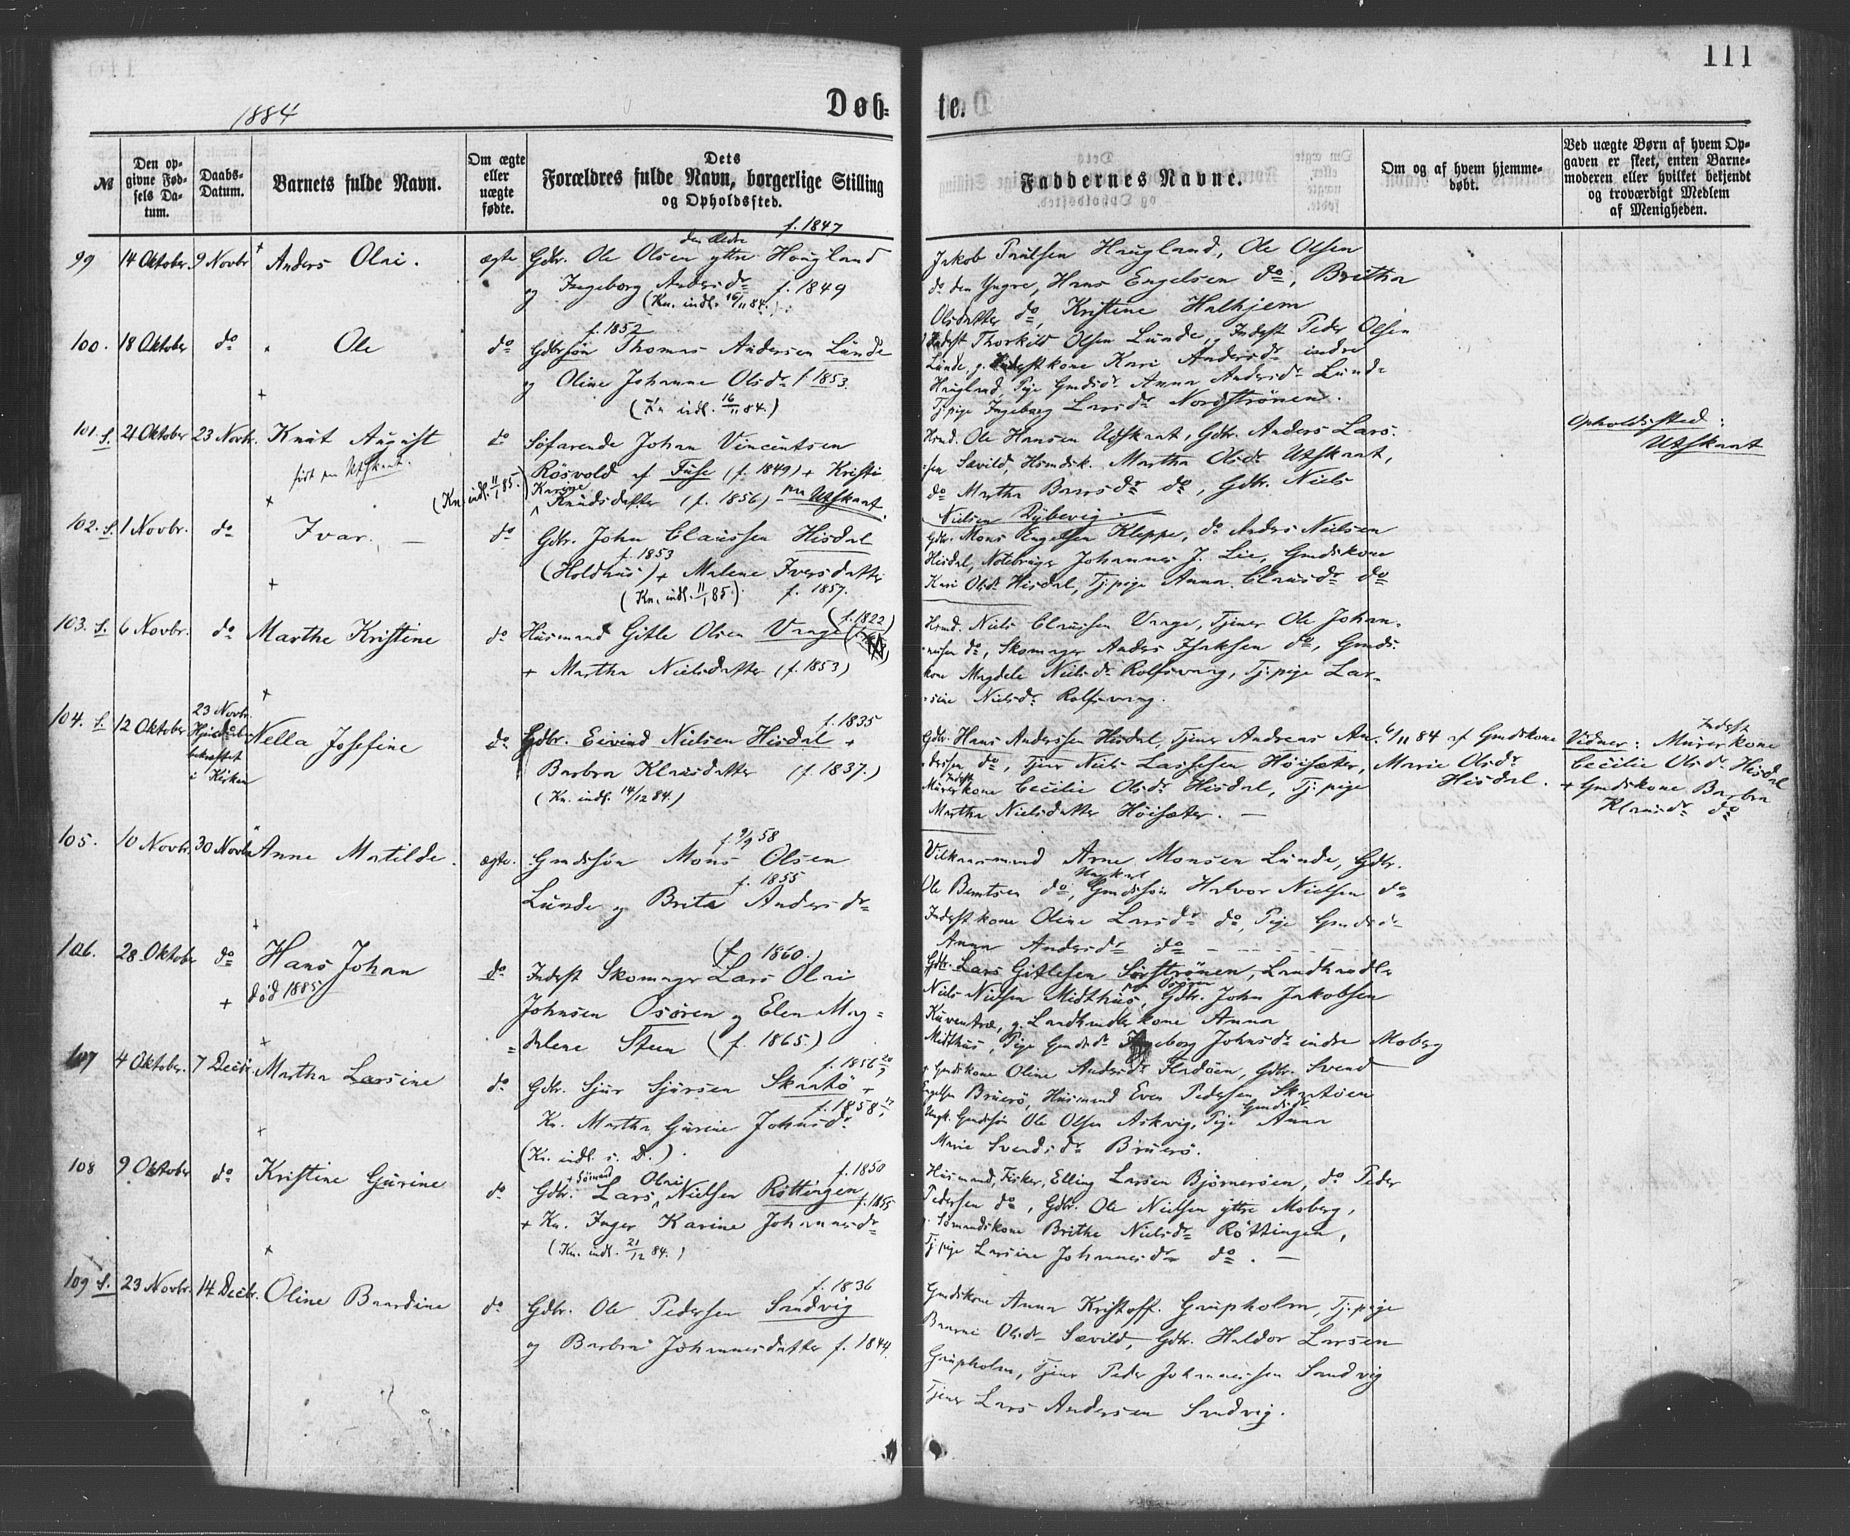 111
1884
Døb-
te.
№
Den op-
givne Fød-
sels Da-
tum.
Daabs-
Datum.
Barnets fulde Navn.
Om ægte
eller
uægte
fødte.
Dets
Forældres fulde Navn, borgerlige Stilling
og Opholdssted.
Faddernes Navne.
Om og af hvem hjemme-
døbt.
Ved uægte Børn af hvem Op-
gaven er skeet, enten Barne-
moderen eller hvilket bekjendt
og troværdigt Medlem
af Menigheden.
99 14 Oktober 9 Novbr Anders Olai. ægte
den Ældre f. 1847
Gdbr. Ole Olsen yttre Hougland
og Ingeborg Andersdr f. 1849
(Kn. indl. 16/11 84.)
Jakob Paulsen Haugland, Ole Olsen
do den Yngre, Hans Engelsen do, Britha
Olsdatter do, Kristine Halhjem
100. 18 Oktober do Ole do
f. 1852
Gdbrsøn Thomas Andersen Lunde
og Oline Johanne Olsdr f 1853.
(Kn indl. 16/11 84.)
Inderst Thorkild Olsen Lunde, Inderst Peder Olsen
Lunde, g. Inderstkone Kari Andersdr indre
Haugland, Pige Gmdsdr Anna Andersdr Lunde
Tj.pige Ingeborg Larsdr Nordstrønen.
101. S. 21 Oktober 23 Novbr. Knut August do
født paa Utskaat.
Søfarende Johan Vincentsen
Røsvold af Fuse (f. 1849) + Kristi
Karine
Knudsdatter (f. 1856) paa Utskaat.
(Kn. indl. 11/1 85.)
Hmd. Ole Hansen Udskaat, Gdbr. Anders Lars-
sen Sævild, Hsmdsk. Martha Olsdr Utskaat,
do Martha Baarsdr do, Gdbr. Niels
Nielsen Dybevig.
Opholdssted:
Utskaat
102. S. 1 Novbr. do Ivar. do
Gdbr. John Claussen Hisdal
f. 1853
(Holdhus) + Malene Iversdatter
(Kn. indl. 11/1 85.) f. 1857.
Gdbr. Mons Engelsen Kleppe, do Anders Nielsen
Hisdal, Notebruger Johannes J. Lie, Gmdskone
Kari Olsdr Hisdal, Tj.pige Anna Clausdr do
103. S. 6 Novbr. do Marthe Kristine do
(f. 1822)
Husmand Gitle Olsen Vaage
+ Martha Nielsdatter (f. 1853)
Hsmd. Niels Clausen Vaage, Tjener Ole Johan-
nesen do, Skomager Anders Isaksen do, Gmds-
kone Magdele Nielsdr Rolfsvaag, Tj.pige Lar-
sine Nielsdr Rolfsvaag.
104. S. 12 Oktober 23 Novbr. Nella Josefine do
Hjemdaab
bekræftet
i Kirken
f. 1835
Gdbr. Eivind Nielsen Hisdal +
Barbra Klausdatter (f. 1837.)
(Kn. indl. 14/12 84.)
Gdbr. Hans Anderssen Hisdal, Tjener Andreas An-
dersen do, Tjener Niels Larssen Høisæter,
Inderst
Murerkone Cecilie Olsdr Hisdal, Tj.pige
Martha Nielsdatter Høisæter.
6/11 84 af Gmdskone
Marie Olsdr
Hisdal.
Inderst
Vidner: Murerkone
Cecilie Olsdr Hisdal
+ Gmdskone Barbra
Klausdr do
105. 10 Novbr. 30 Novbr Anne Matilde. ægte.
f. 9/9 58
Gmdssøn Mons Olsen
f. 1855
Lunde og Brita Andersdr
Vilkaarsmand Arne Monsen Lunde, Gdbr.
Ungkarl
Ole Bentsen do, Gmdssøn Halvor Nielsen do
Inderstkone Oline Larsdr do, Pige Gmdsdr
Anna Andersdr do
106. 28 Oktober do Hans Johan do
død 1885
(f. 1860.)
Inderst Skomager Lars Olai
Johnsen Osøren og Elen Mag-
dalene Steen (f. 1865.)
Gdbr. Lars Gitlesen Sørstrønen, Landhandler
paa Osøren
Niels Nielsen Midthus, Gdbr. John Jakobsen
Kuventræ, g. Landhandlerkone Anna
Midthus, Pige Gmdsdr Ingeborg Johnsdr indre Moberg
107 4 Oktober. 7 Decbr. Martha Larsine do
f. 1856
Gdbr. Sjur Sjursen Skaatø +
f. 1858
Kn. Martha Gurine Johnsdr
(Kn. indl. s. D.)
Gmdskone Oline Andersdr Fladøen, Gdbr. Svend
Engelsen Bruerø, Husmand Even Pedersen Skaatøen
Gmdsdr
Ungk. Gmdssøn Ole Olsen Askvig, Pige Anna
Marie Svendsdr Bruerø.
108 9 Oktober do Kristine Gurine do
+ Sømand Olai f. 1850
Gdbr. Lars Nielsen Røttingen
f. 1855
+ Kn. Inger Karine Johannesdr
(Kn. indl. 21/12 84.)
Husmand, Fisker, Elling Larsen Bjørnerøen, do Peder
Pedersen do, Gdbr. Ole Nielsen yttre Moberg,
g. Sømandskone Brithe Nielsdr Røttingen,
Tj.pige Larsine Johannesdr do.
109 S. 23 Novbr. 14 Decbr. Oline Baardine do
f. 1836
Gdbr. Ole Pedersen Sandvig
og Barbra Johannesdatter f. 1844.
Gmdskone Anna Kristoff. Gaupholm, Tj.pige
Baarni Olsdr Sævild, Gdbr. Haldor Larsen
Gaupholm, Tjener Peder Johannessen Sandvig
Tjener Lars Andersen Sandvig.